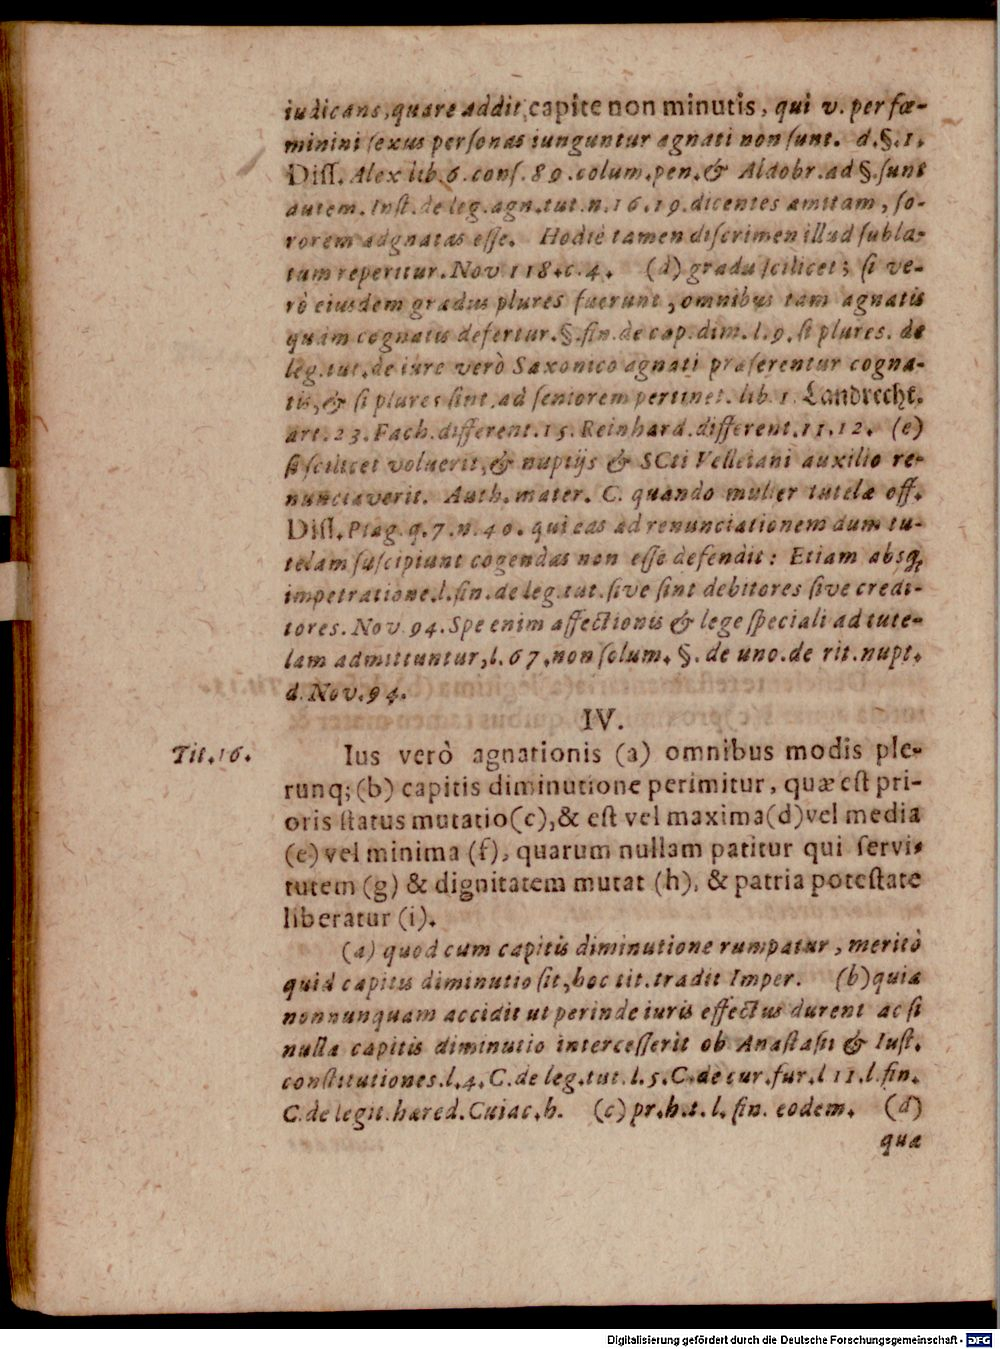 iudicans, quare addit, capite non minutis, qui v. per fœ-
minini sexus personas iunguntur agnati non sunt. d. §. 1.
Diss. Alex lib. 6. cons. 89. colum. pen. & Aldobr. ad §. sunt
autem. Inst. de leg. agn. tut. n. 16. 19. dicentes amitam, so-
rorem adgnatas esse. Hodiè tamen discrimen illud subla-
tum reperitur. Nov 118. c. 4. (d) gradu scilicet; si ve-
rò eiusdem gradus plures fuerunt, omnibus tam agnatis
quam cognatis defertur. §. fin. de cap. dim. l. 9. si plures. de
leg. tut. de iure verò Saxonico agnati præferentur cogna-
tis, & si plures sint, ad seniorem pertinet. lib. 1. Landrecht.
art. 23. Fach. different. 15. Reinhard. different. 11. 12. (e)
si scilicet voluerit, & nuptijs & SCti Velleiani auxilio re-
nunciaverit. Auth. mater. C. quando mulier tutelæ off.
Diss. Ptag. q. 7. n. 40. qui eas ad renunciationem dum tu-
telam suscipiunt cogendas non esse defendit: Etiam absq;
impetratione. l. fin. de leg. tut. sive sint debitores sive credi-
tores. Nov 94. Spe enim affectionis & lege speciali ad tute-
lam admittuntur, l. 67. non solum. §. de uno. de rit. nupt.
d. Nov. 94.
IV.
Tit. 16.
Ius verò agnationis (a) omnibus modis ple-
runq; (b) capitis diminutione perimitur, quæ est pri-
oris status mutatio (c), & est vel maxima (d) vel media
(e) vel minima (f), quarum nullam patitur qui servi-
tutem (g) & dignitatem mutat (h), & patria potestate
liberatur (i).
(a) quod cum capitis diminutione rumpatur, meritò
quid capitis diminutio sit, hoc tit. tradit Imper. (b) quia
nonnunquam accidit ut perinde iuris effectus durent ac si
nulla capitis diminutio intercesserit ob Anastasii & Iust.
constitutiones. l. 4. C. de leg. tut. l. 5. C. de cur. fur. l 11. l. fin.
C. de legit. hæred. Cuiac. h. (c) pr. h. t. l. fin. eodem. (d)
qua
Digitalisierung gefördert durch die Deutsche Forschungsgemeinschaft - DFG